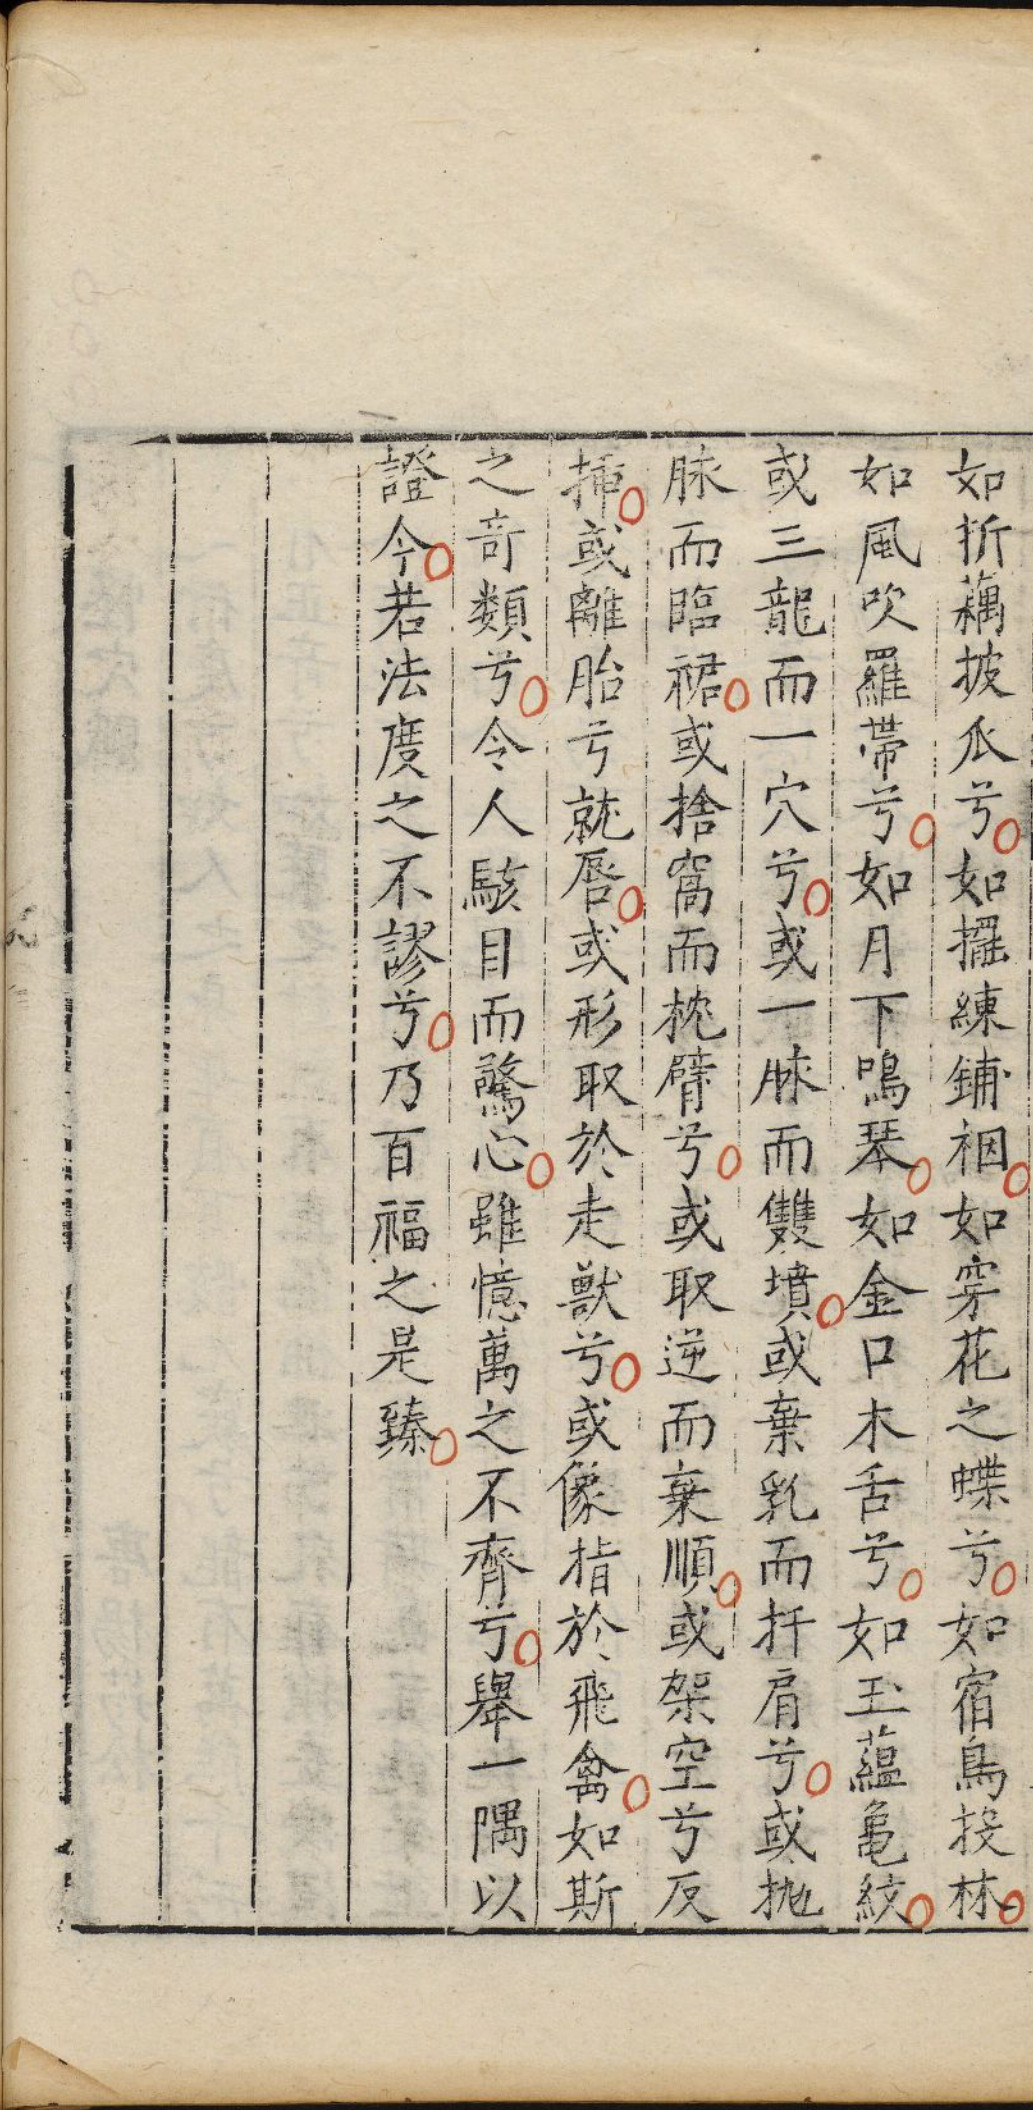 如折藕披瓜兮如擺練鋪裀如穿花之蝶兮如宿鳥投林
如風吹羅帶兮如月下鳴琴如金口木舌兮如玉蘊龜紋
或三龍而一穴兮或一脉而雙墳或棄乳而扦肩兮或抛
脉而臨裙或捨窩而枕臂兮或取逆而棄順或架空兮反
揷或離胎兮就唇或形取於走獸兮或像指於飛禽如斯
之竒類兮令人駭目而驚心雖憶萬之不齊兮舉一隅以
證今若法度之不謬兮乃百福之是臻